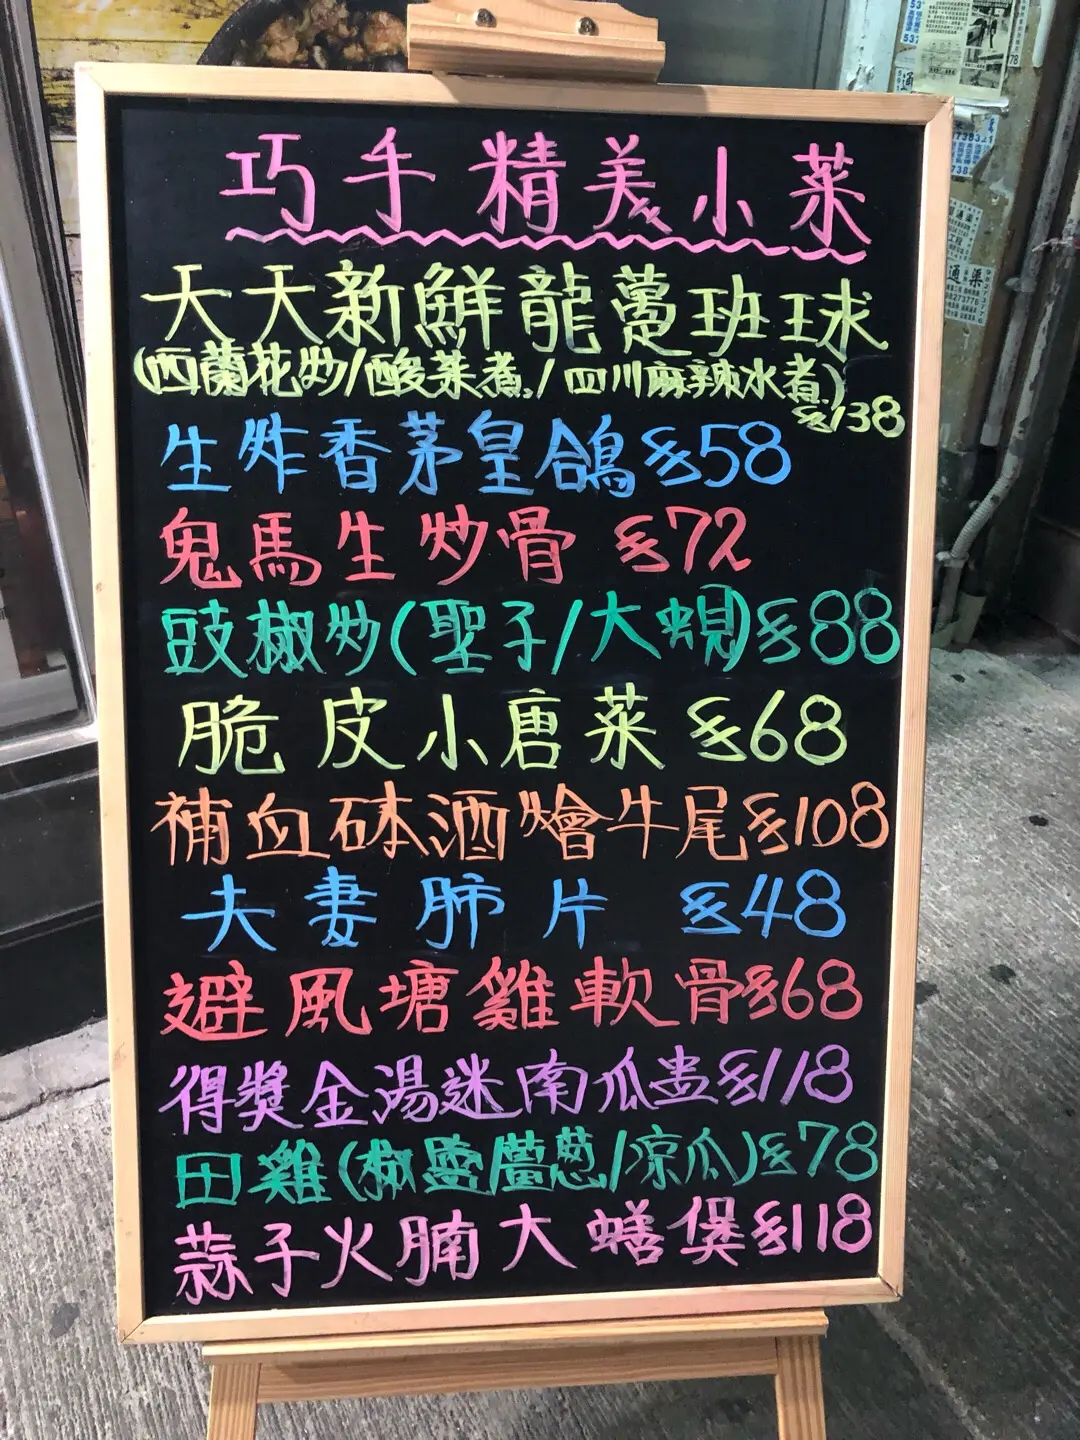 巧手精美小菜
天天新鮮龍躉班球
(西蘭花炒/酸菜煮/四川麻辣水煮)
$138
生炸香茅皇鴿$58
鬼馬生炒骨 $72
豉椒炒(聖子/大蜆)$88
脆皮小唐菜$68
補血砵酒燴牛尾$108
夫妻肺片 $48
避風塘雞軟骨$68
得獎金湯迷南瓜盅$118
田雞(椒鹽/薑葱/涼瓜)$78
蒜子火腩大鱔煲$118